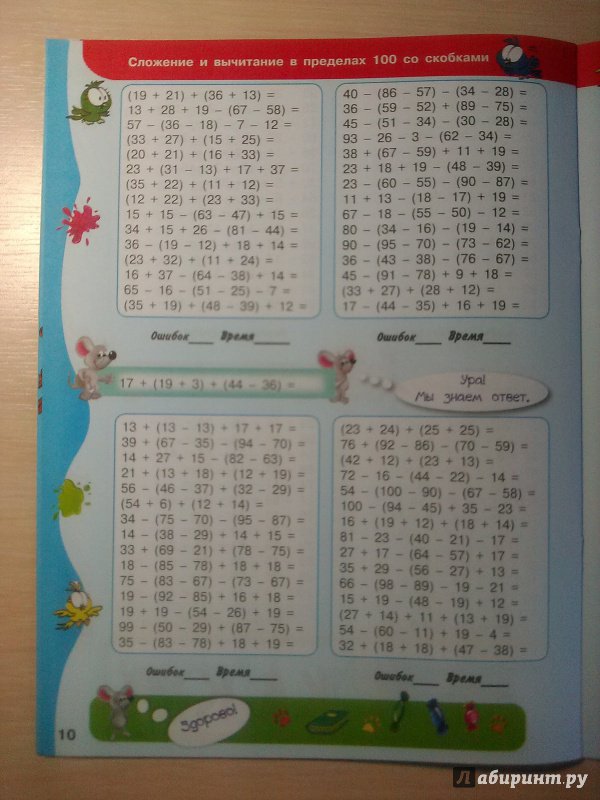 Сложение и вычитание в пределах 100 со скобками
(19 + 21) + (36 + 13) =
13 + 28 + 19 – (67 – 58) =
57 – (36 – 18) – 7 – 12 =
(33 + 27) + (15 + 25) =
(20 + 21) + (16 + 33) =
23 + (31 – 13) + 17 + 37 =
(35 + 22) + (11 + 12) =
(12 + 22) + (23 + 33) =
15 + 15 – (63 – 47) + 15 =
34 + 15 + 26 – (81 – 44) =
36 – (19 – 12) + 18 + 14 =
(23 + 32) + (11 + 24) =
16 + 37 – (64 – 38) + 14 =
65 – 16 – (51 – 25) – 7 =
(35 + 19) + (48 – 39) + 12 =
Ошибок____ Время_____
40 – (86 – 57) – (34 – 28) =
36 – (59 – 52) + (89 – 75) =
45 – (51 – 34) – (30 – 28) =
93 – 26 – 3 – (62 – 34) =
38 + (67 – 59) + 11 + 19 =
23 + 18 + 19 – (48 – 39) =
23 – (60 – 55) – (90 – 87) =
11 + 13 – (18 – 17) + 19 =
67 – 18 – (55 – 50) – 12 =
80 – (34 – 16) – (19 – 14) =
90 – (95 – 70) – (73 – 62) =
36 – (43 – 38) – (76 – 67) =
45 – (91 – 78) + 9 + 18 =
(33 + 27) + (28 + 12) =
17 – (44 – 35) + 16 + 19 =
Ошибок____ Время_____
17 + (19 + 3) + (44 – 36) =
Ура!
Мы знаем ответ.
13 + (13 – 13) + 17 + 17 =
39 + (67 – 35) – (94 – 70) =
14 + 27 + 15 – (82 – 63) =
21 + (13 + 18) + (12 + 19) =
56 – (46 – 37) + (32 – 29) =
(54 + 6) + (12 + 14) =
34 – (75 – 70) – (95 – 87) =
14 – (38 – 29) + 14 + 15 =
33 + (69 – 21) + (78 – 75) =
18 – (85 – 78) + 18 + 18 =
75 – (83 – 67) – (73 – 67) =
19 – (92 – 85) + 16 + 18 =
19 + 19 – (54 – 26) + 19 =
99 – (50 – 29) + (87 – 75) =
35 – (83 – 78) + 18 + 19 =
Ошибок____ Время_____
(23 + 24) + (25 + 25) =
76 + (92 – 86) – (70 – 59) =
(42 + 12) + (23 + 13) =
72 – 16 – (44 – 22) – 14 =
54 – (100 – 90) – (67 – 58) =
100 – (94 – 45) + 35 – 23 =
16 + (19 + 12) + (18 + 14) =
81 – 23 – (40 – 21) – 17 =
27 + 17 – (64 – 57) + 17 =
35 + 29 – (56 – 27) + 13 =
66 – (98 – 89) – 19 – 21 =
15 + 19 – (48 – 19) + 12 =
(27 + 14) + 11 + (13 + 19) =
54 – (60 – 11) + 19 – 4 =
32 + (18 + 18) + (47 – 38) =
Ошибок____ Время_____
Здорово!
10
Лабиринт.ру